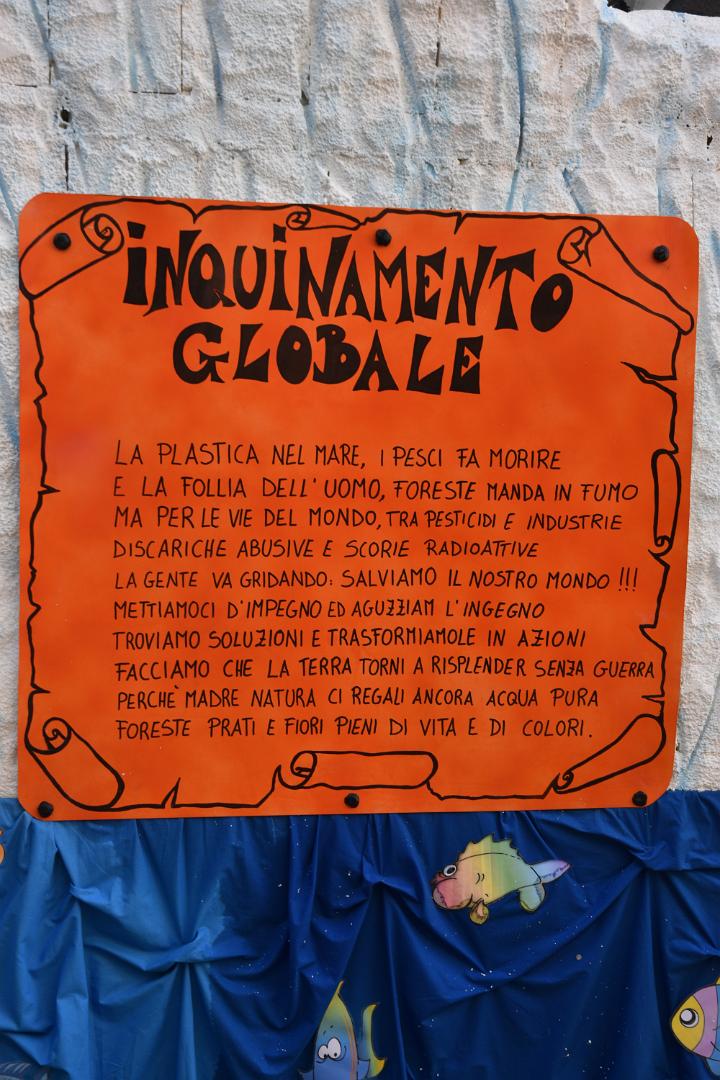 INQUINAMENTO
GLOBALE
LA PLASTICA NEL MARE, I PESCI FA MORIRE
E LA FOLLIA DELL'UOMO, FORESTE MANDA IN FUMO
MA PER LE VIE DEL MONDO, TRA PESTICIDI E INDUSTRIE
DISCARICHE ABUSIVE E SCORIE RADIOATTIVE
LA GENTE VA GRIDANDO: SALVIAMO IL NOSTRO MONDO !!!
METTIAMOCI D'IMPEGNO ED AGUZZIAM L'INGEGNO
TROVIAMO SOLUZIONI E TRASFORMIAMOLE IN AZIONI
FACCIAMO CHE LA TERRA TORNI A RISPLENDER SENZA GUERRA
PERCHÈ MADRE NATURA CI REGALI ANCORA ACQUA PURA
FORESTE PRATI E FIORI PIENI DI VITA E DI COLORI.